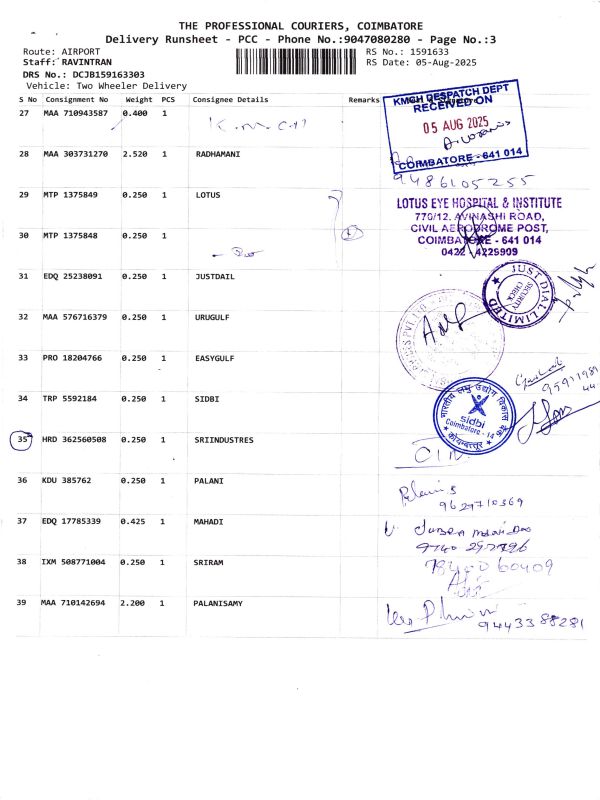 THE PROFESSIONAL COURIERS, COIMBATORE
Delivery Runsheet - PCC - Phone No.:9047080280 - Page No.:3
Route: AIRPORT
Staff: RAVINTRAN
DRS No.: DCJB159163303
Vehicle: Two Wheeler Delivery
RS No.: 1591633
RS Date: 05-Aug-2025
S No Consignment No Weight PCS Consignee Details Remarks
27 MAA 710943587 0.400 1
K.M.C.H
KMCH DESPATCH DEPT
RECEIVED ON
05 AUG 2025
COIMBATORE - 641 014
28 MAA 303731270 2.520 1 RADHAMANI
9486105255
29 MTP 1375849 0.250 1 LOTUS
LOTUS EYE HOSPITAL & INSTITUTE
770/12, AVINASHI ROAD,
CIVIL AERODROME POST,
COIMBATORE - 641 014
0422 4229999
30 MTP 1375848 0.250 1
31 EDQ 25238091 0.250 1 JUSTDAIL
JUST DIAL LIMITED
SECURITY
CHECK
32 MAA 576716379 0.250 1 URUGULF
33 PRO 18204766 0.250 1 EASYGULF
34 TRP 5592184 0.250 1 SIDBI
भारतीय लघु उद्योग विकास बैंक
sidbi
Coimbatore - 14
कोयम्बत्तूर
35 HRD 362560508 0.250 1 SRIINDUSTRES
36 KDU 385762 0.250 1 PALANI
Palani S
9629710369
37 EDQ 17785339 0.425 1 MAHADI
9740 297796
38 IXM 508771004 0.250 1 SRIRAM
39 MAA 710142694 2.200 1 PALANISAMY
9443388281